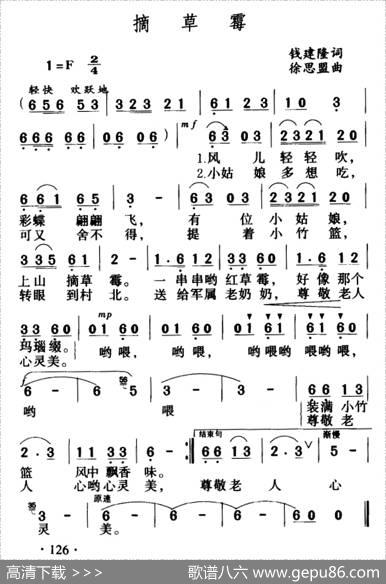 摘草霉
1=F 2/4
钱建隆词
徐思盟曲
轻快 欢跃地
(656 53 | 323 21 | 61 23 | 10 03 |
mf
666 66 | 06 06) | 63 03 | 2321 20 |
1.风 儿 轻 轻 吹,
2.小姑 娘 多 想 吃,
661 65 | 3 - | 63 03 | 2321 20 |
彩蝶 翩翩 飞, 有 位 小 姑 娘,
可又 舍不 得, 提 着 小 竹 篮,
335 61 | 2 - | 1·6 12 | 33 13 | 1·6 12 |
上山 摘草 霉。 一 串串哟 红草霉, 好 像 那个
转眼 到村 北。 送 给军属 老奶 奶, 尊 敬 老人
mp
33 60 | 01 60 | 01 60 | 01 61 | 61 60 |
玛瑙缀。 哟 喂, 哟 喂, 哟喂哟喂哟喂,
心灵美。
f
6 - | 6 5 | 3 - | 3 - | 66 13 |
哟 喂 装满 小竹
尊敬 老
结束句
渐慢
2·3 | 11 33 | 6 - :‖ 66 13 | 2·3 | 5 - |
篮 风中 飘香 味。
人 心哟 心灵 美, 尊敬 老 人 心
原速
3 - | 6 - | 6 - | 6 0 ‖
灵 美。
·126·
高清下载 >>>
歌谱八六 www.gepu86.com